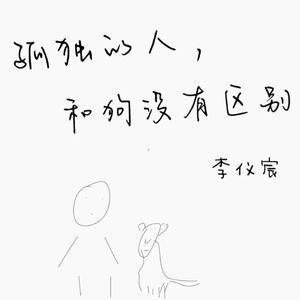 孤独的人，
和狗没有区别
李仪宸